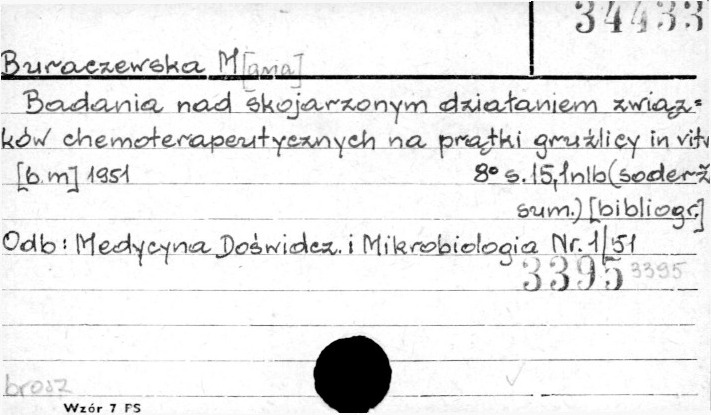 34433
Buraczewska M[aria]
Badania nad skojarzonym działaniem związ=
ków chemoterapeutycznych na prątki gruźlicy in vitr
[b.m] 1951 8° s.15,1nlb(soderž
sum.) [bibliogr.]
Odb: Medycyna Doświdcz. i Mikrobiologia Nr. 1/51
3395 3395
brosz
Wzór 7 FS